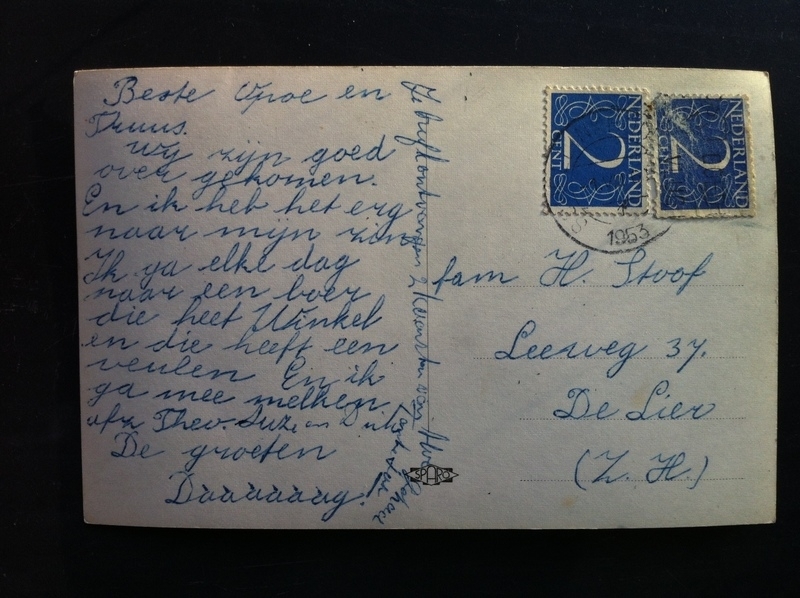 Beste Opoe en
Truus.
Wij zijn goed
over gekomen.
En ik heb het erg
naar mijn zin
Ik ga elke dag
naar een boer
die heet Winkel
en die heeft een
veulen En ik
ga mee melken
afz Theo. Suze en Dirk
De groeten
Daaaaaaag!
2 kaarten van
NEDERLAND
2
CENT
NEDERLAND
2
CENT
1953
fam H. Stoof
Leeweg 37.
De Lier
(Z. H.)
SPARO